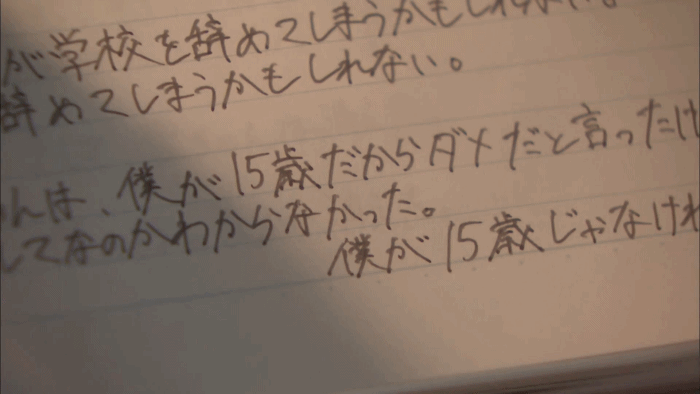 が学校を辞めてしまうかもしれない。
辞めてしまうかもしれない。
んは、僕が15歳だからダメだと言ったけ
してなのかわからなかった。
僕が15歳じゃなけれ